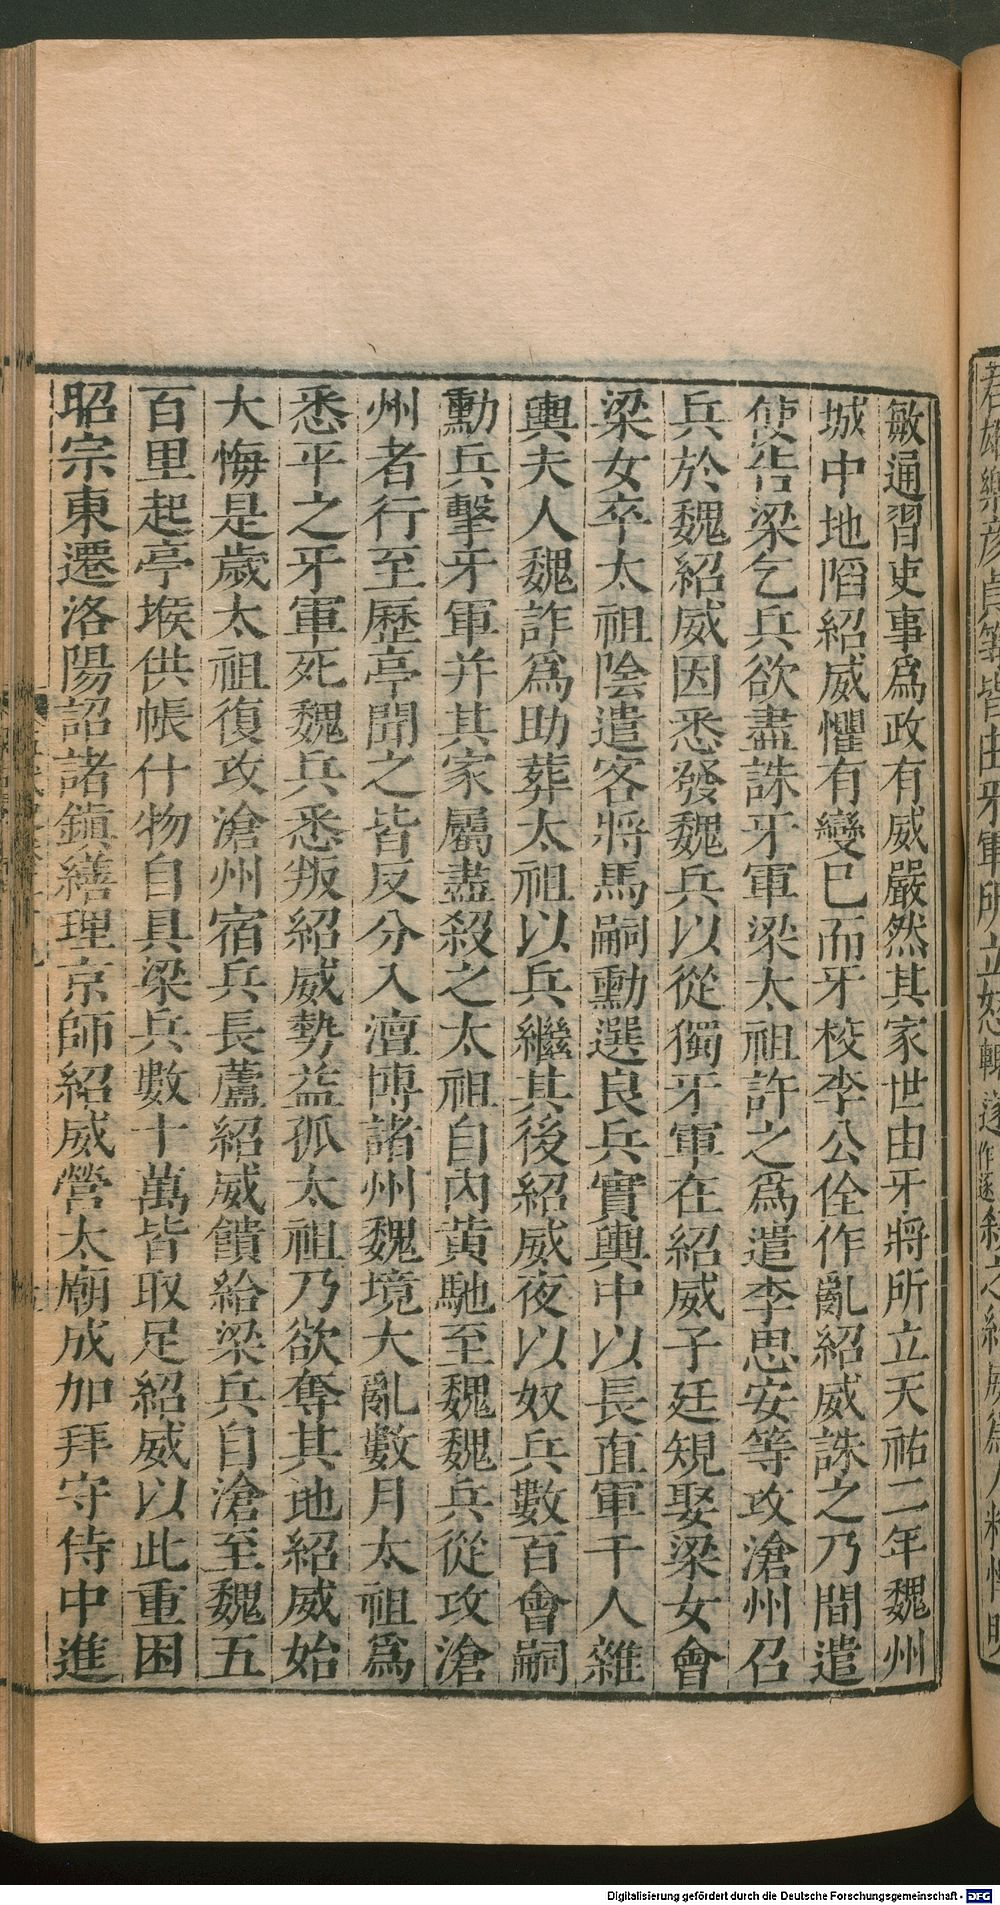 敏通習吏事爲政有威嚴然其家世由牙將所立天祐二年魏州
城中地陷紹威懼有變已而牙校李公佺作亂紹威誅之乃間遣
使告梁乞兵欲盡誅牙軍梁太祖許之爲遣李思安等攻滄州召
兵於魏紹威因悉發魏兵以從獨牙軍在紹威子廷規娶梁女會
梁女卒太祖陰遣客將馬嗣勳選良兵實輿中以長直軍千人雜
輿夫人魏詐爲助葬太祖以兵繼其後紹威夜以奴兵數百會嗣
勳兵擊牙軍并其家屬盡殺之太祖自內黃馳至魏魏兵從攻滄
州者行至歷亭聞之皆反分入澶博諸州魏境大亂數月太祖爲
悉平之牙軍死魏兵悉叛紹威勢益孤太祖乃欲奪其地紹威始
大悔是歲太祖復攻滄州宿兵長蘆紹威饋給梁兵自滄至魏五
百里起亭堠供帳什物自具梁兵數十萬皆取足紹威以此重困
昭宗東遷洛陽詔諸鎮繕理京師紹威營太廟成加拜守侍中進
Digitalisierung gefördert durch die Deutsche Forschungsgemeinschaft - DFG